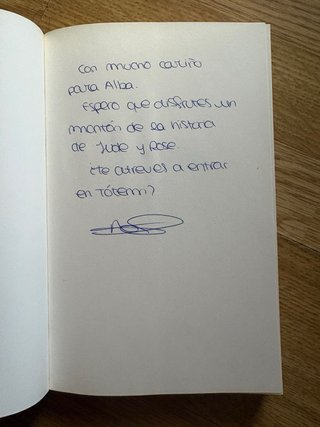 Con mucho cariño
para Alba.
Espero que disfrutes un
montón de la historia
de Jude y Rose.
¿Te atreves a entrar
en Tótem?